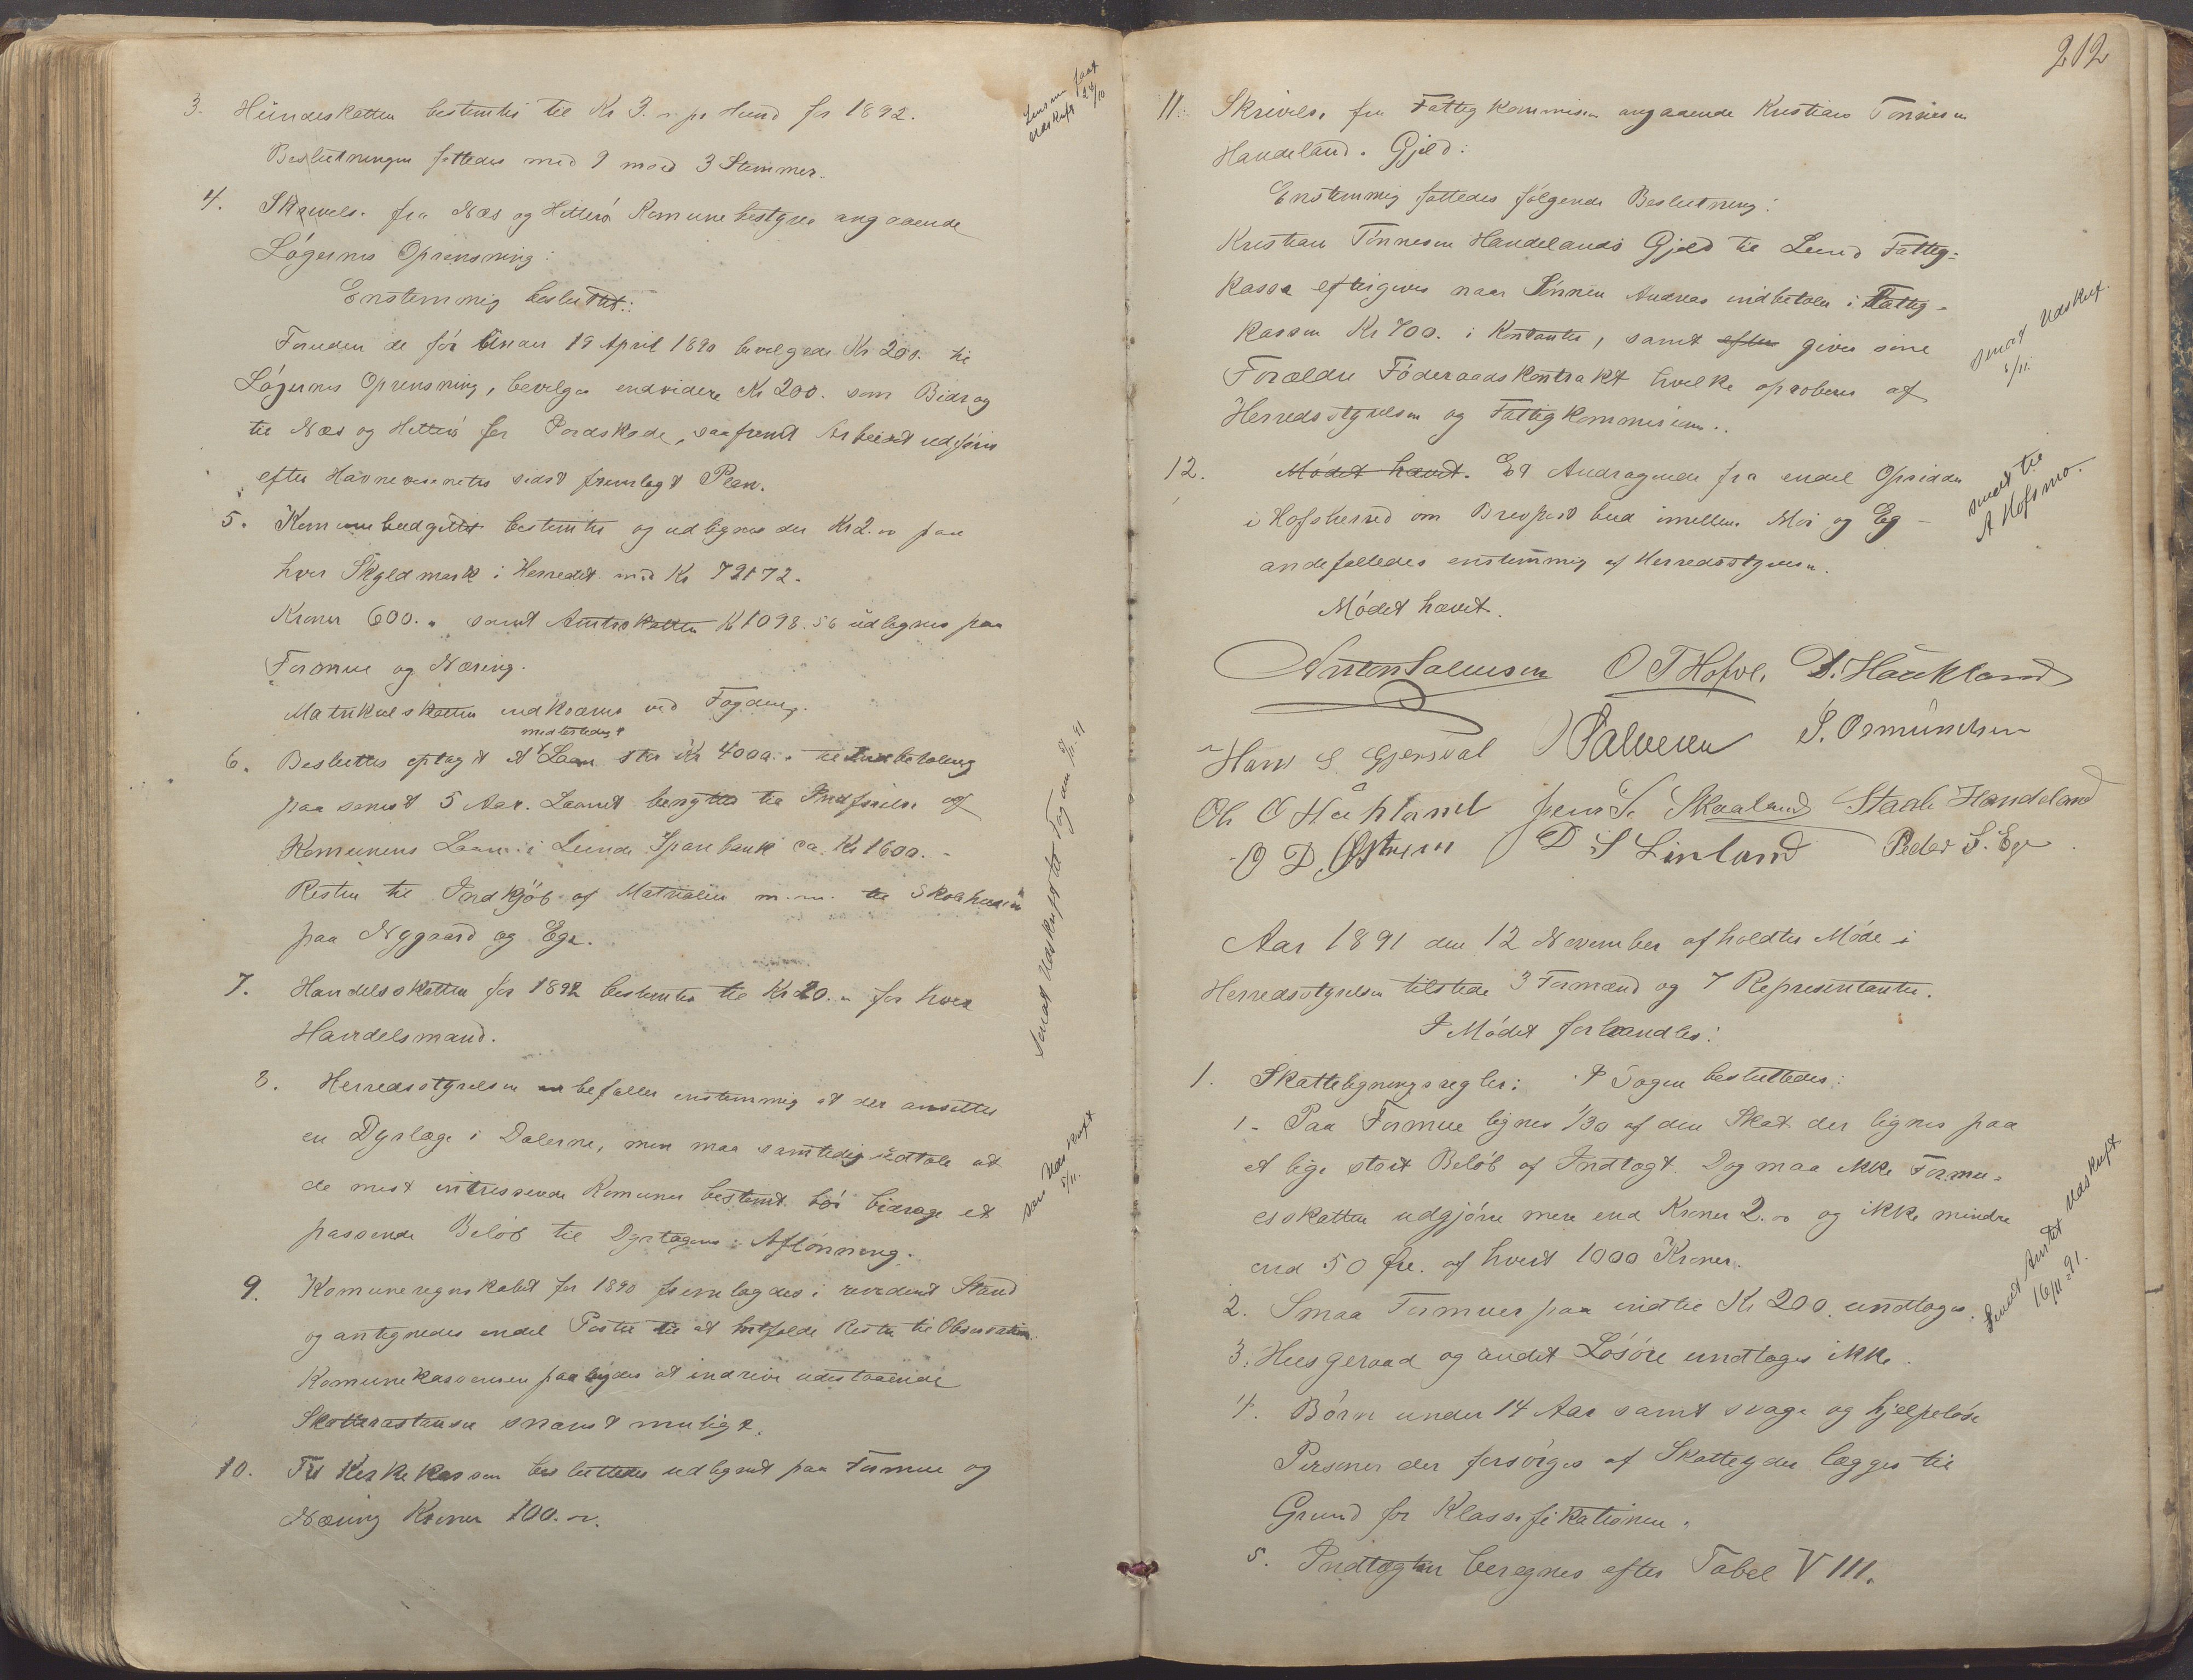 3. Hundeskatten bestemtes til Kr 3.00 pr Hund for 1892.
Beslutningen fattedes med 9 mod 3 Stemmer.
Lensm faat Udskrift 24/10
4. Skrivelse fra Næs og Hitterø Komunebestyre angaaende
Lógernes Oprensning:
Enstemmig besluttet:
Foruden de før under 19 April 1890 bevilgede Kr 200. til
Lógernes Oprensning, bevilges endvidere Kr 200. som Bidrag
til Næs og Hitterø for, saafremt Arbeidet udføres
efter Havnevesenetes sidst fremlagt Plan.
5. Komunebudgittet bestemtes og udlignes der Kr 2.00 paa
hver Skyldmark i Herredet med Kr
Kroner 600.00 samt Amtsskatten Kr 1098.56 udlignes paa
Formue og Næring.
Matrikulskatten indkræves ved Fogden.
6. Besluttes optaget et Laan stor Kr 4000.00 til Indbetaling
paa senest 5 Aar. Laanet benyttes til Indfrielse af
Komunens Laan i Lunde Sparebank ca. Kr 1600.-
Resten til Indkjøb af Matrialier m.m. til Skolehusene
paa Nygaard og Ege.
Sendt Udskrift til Fogden 5/11 91
7. Handelsskatten for 1892 bestemtes til Kr 20.00 for hver
Handelsmand.
8. Herredsstyrelsen anbefaller enstemmig at der ansættes
en Dyrlæge i Dalerne, men maa samtidig udtale at
de mest intresserede Komuner bestemt bør bidrage et
passende Beløb til Dyrlægens Aflønning.
Udskrift 5/11.
9. Komuneregnskabet for 1890 fremlagdes i revideret Stand
og antegnedes endel Poster til at bortfalde Resten til Observation.
Komunekassereren paalegdes at indrive udestaaende
Skatterestanser snarest muligt.
10. Til Kirkekassen besluttedes udlignet paa Formue og
Næring Kroner 100.00.
212
11. Skrivelse fra Fattigkommision angaaende Kristian Tønnesen
Handeland. Gjeld:
Enstemmig fattedes følgende Beslutning:
Kristian Tønnesen Handelands Gjeld til Lund Fattig-
kassa eftergives naar Sønnen Andreas indbetaler i Fattig-
kassen Kr 700. i Kontanter, samt efter giver sine
Forældre Føderaadskontrakt hvilke aproberes af
Herredsstyrelsen og Fattigkommisionen.
Sendt Udskrift. 5/11.
12. Mødet hævet. Et Andragende fra endel Opsidder
i Hofsherred om Brevpost bud imellem Moi og Eg
andefalledes enstemmig af Herredsstyrelsen.
Sendt til A Hofsmo.
Mødet hævet.
Anton Salvesen O T Hofsl. D. Haukland
Hans S. Gjersdal S. Osmundsen
Ole O Haukland Jens S. Skaaland Staale Handeland
O D Østrem D S Linland Peder S. Ege
Aar 1891 den 12 November afholdtes Møde i
Herredsstyrelsen tilstede 3 Formænd og 7 Representanter.
I Mødet forhandles:
1. Skatteligningsregler: I Sagen besluttedes:
1. Paa Formue lignes 1/30 af den Skat der lignes paa
et lige stort Beløb af Indtægt. Dog maa ikke Formu-
esskatten udgjøre mere end Kroner 2.00 og ikke mindre
end 50 Øre. af hvert 1000 Kroner.
2. Smaa Formuer paa indtil Kr 200. undtages.
3. Husgeraad og andet Løsøre undtages ikke.
4. Børn under 14 Aar samt svage og hjelpeløse
Personer der forsørges af Skatteyder lægges til
Grund for Klassifikationen.
5. Indtægter beregnes efter Tabel VIII.
Sendt Amtet Udskrift 16/11-91.